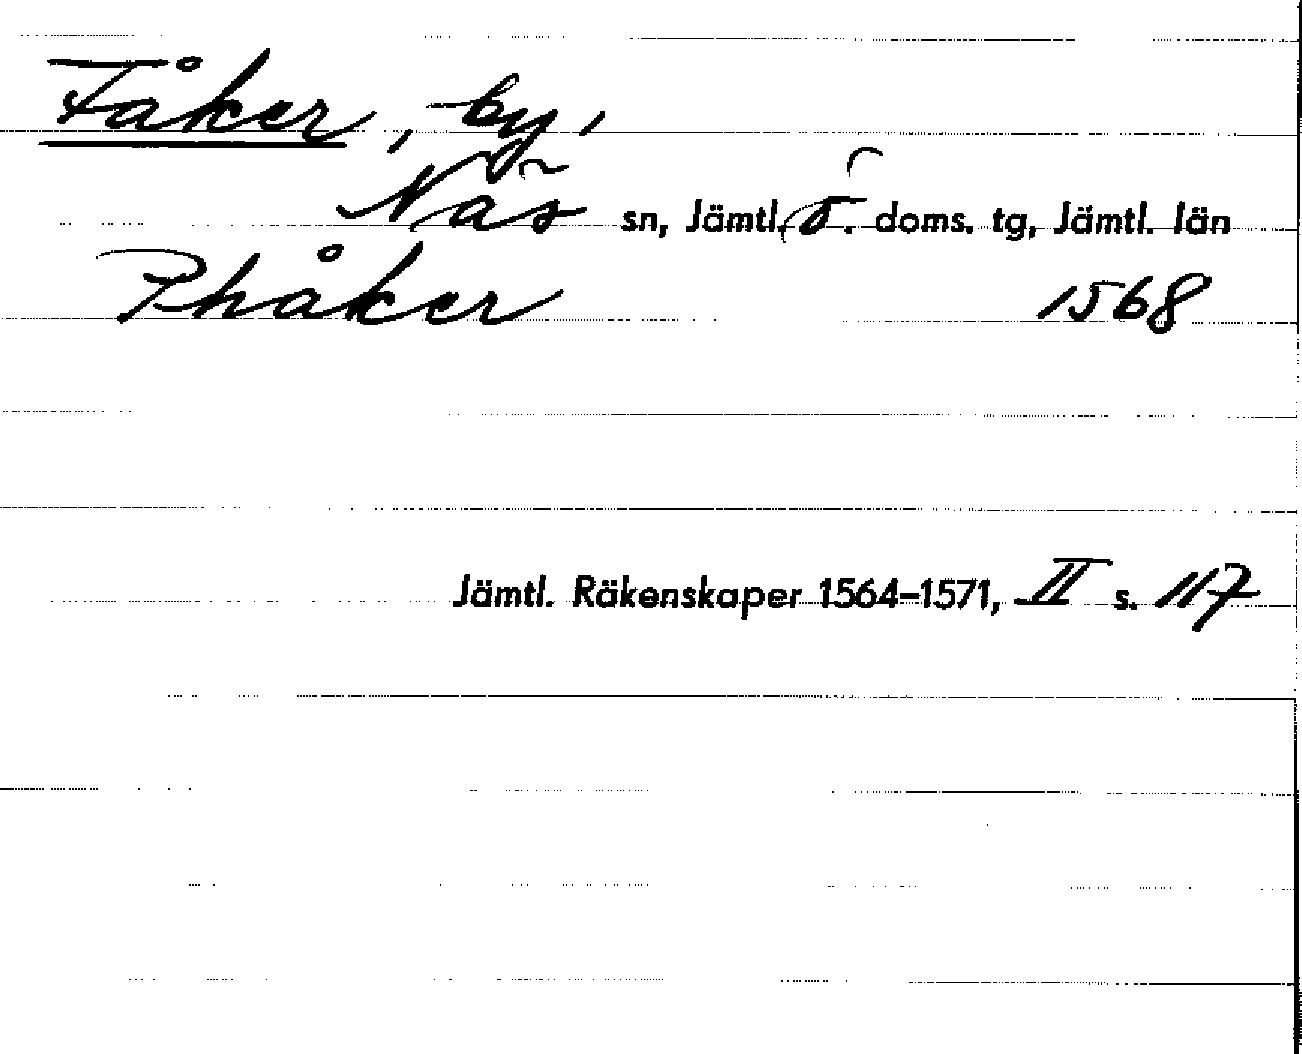 Fåker, by,
Näs sn, Jämtl. ö. doms. tg, Jämtl. län
Phåker 1568
Jämtl. Räkenskaper 1564–1571, II s. 117